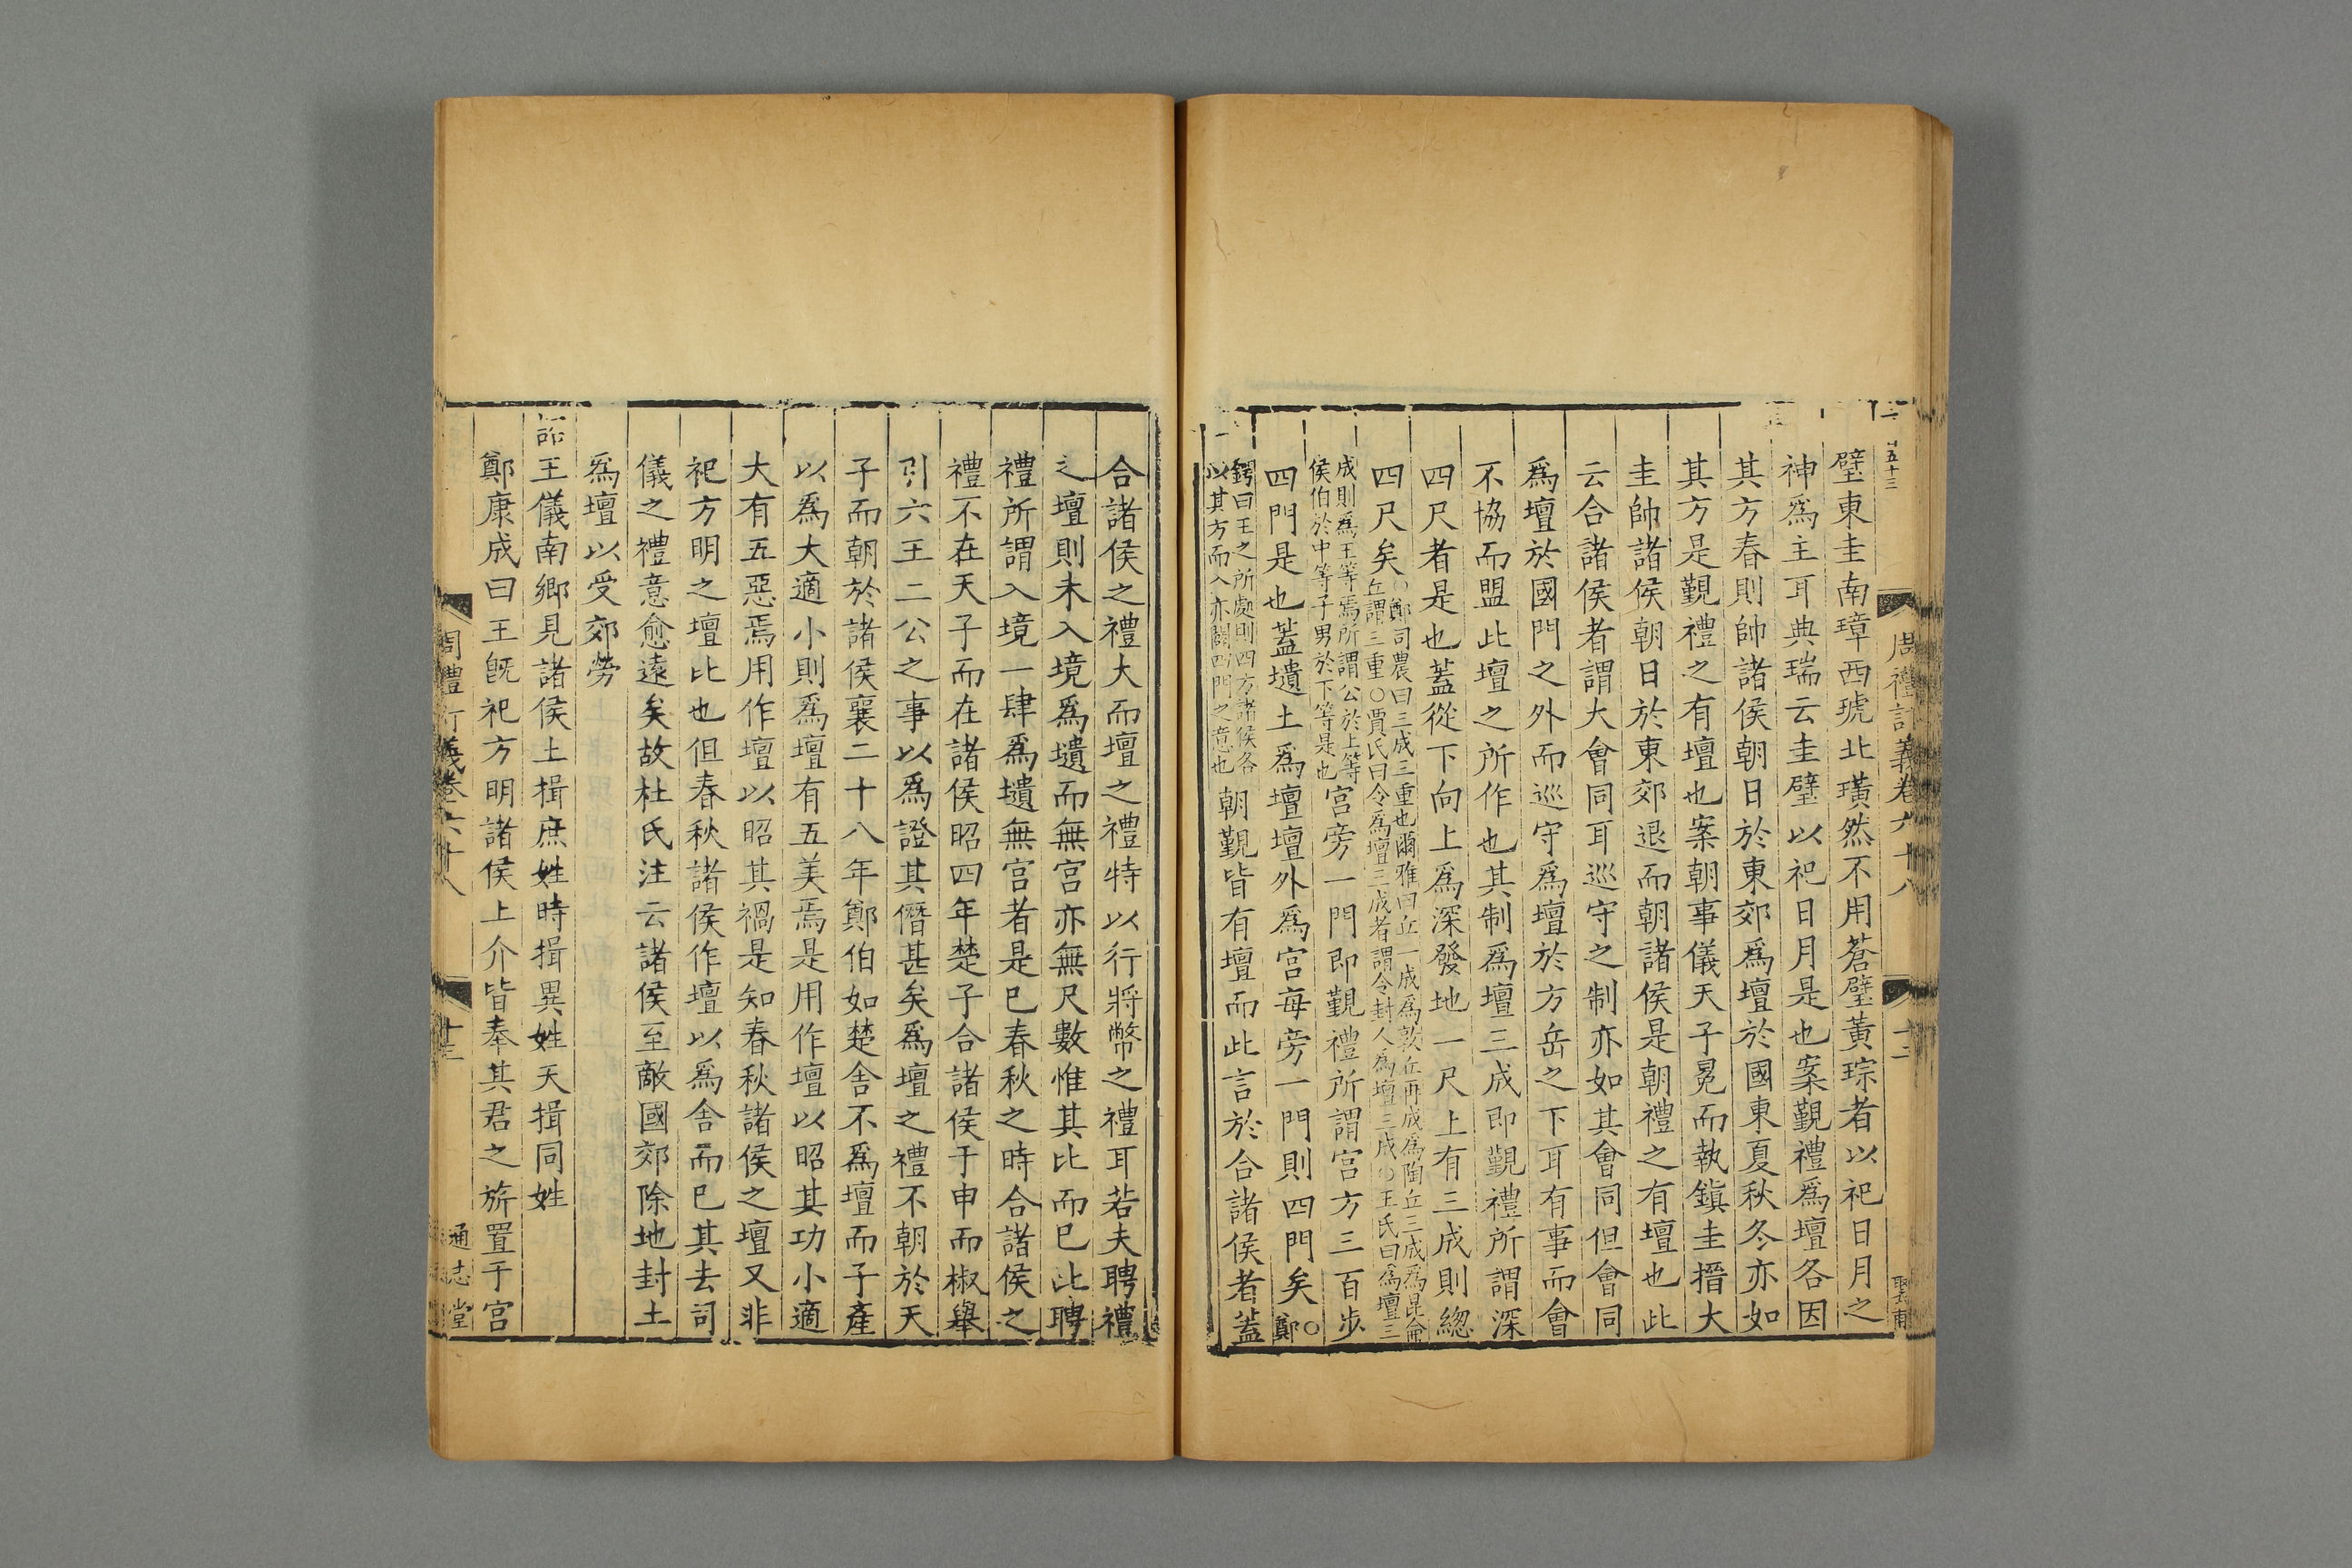 五十三
周禮訂義卷六十八
十二
璧東圭南璋西琥北璜然不用蒼璧黃琮者以祀日月之
神爲主耳典瑞云圭璧以祀日月是也案覲禮爲壇各因
其方春則帥諸侯朝日於東郊爲壇於國東夏秋冬亦如
其方是覲禮之有壇也案朝事儀天子冕而執鎭圭搢大
圭帥諸侯朝日於東郊退而朝諸侯是朝禮之有壇也此
云合諸侯者謂大會同耳巡守之制亦如其會同但會同
爲壇於國門之外而巡守爲壇於方岳之下耳有事而會
不協而盟此壇之所作也其制爲壇三成即覲禮所謂深
四尺者是也蓋從下向上爲深發地一尺上有三成則總
四尺矣
○鄭司農曰三成三重也爾雅曰丘一成爲敦丘再成爲陶丘三成爲昆侖
丘謂三重○賈氏曰令爲壇三成者謂令封人爲壇三成○王氏曰爲壇三
成則爲王等焉所謂公於上等
侯伯於中等子男於下等是也
宮旁一門即覲禮所謂宮方三百步
四門是也蓋壝土爲壇壇外爲宮每旁一門則四門矣
○鄭
鍔曰王之所處則四方諸侯各
以其方而入亦闢四門之意也
朝覲皆有壇而此言於合諸侯者蓋
合諸侯之禮大而壇之禮特以行將幣之禮耳若夫聘禮
之壇則未入境爲壝而無宮亦無尺數惟其比而已此聘
禮所謂入境一肆爲壝無宮者是已春秋之時合諸侯之
禮不在天子而在諸侯昭四年楚子合諸侯于申而椒舉
引六王二公之事以爲證其僭甚矣爲壇之禮不朝於天
子而朝於諸侯襄二十八年鄭伯如楚舍不爲壇而子產
以爲大適小則爲壇有五美焉是用作壇以昭其功小適
大有五惡焉用作壇以昭其禍是知春秋諸侯之壇又非
祀方明之壇比也但春秋諸侯作壇以爲舍而已其去司
儀之禮意愈遠矣故杜氏注云諸侯至敵國郊除地封土
爲壇以受郊勞
詔王儀南鄉見諸侯土揖庶姓時揖異姓天揖同姓
鄭康成曰王既祀方明諸侯上介皆奉其君之旂置于宮
周禮訂義卷六十八
十三
通志堂